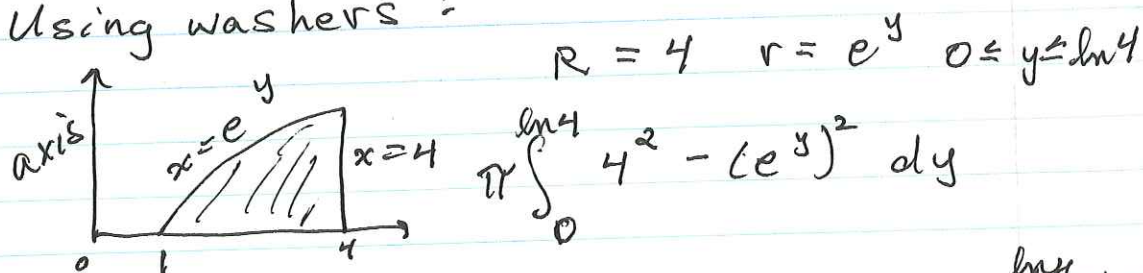 Using washers :
R = 4   r = e^y   0 ≤ y ≤ ln 4
axis
x = e^y
x = 4
π ∫_0^{ln 4} 4² - (e^y)² dy
0   1   4
ln 4